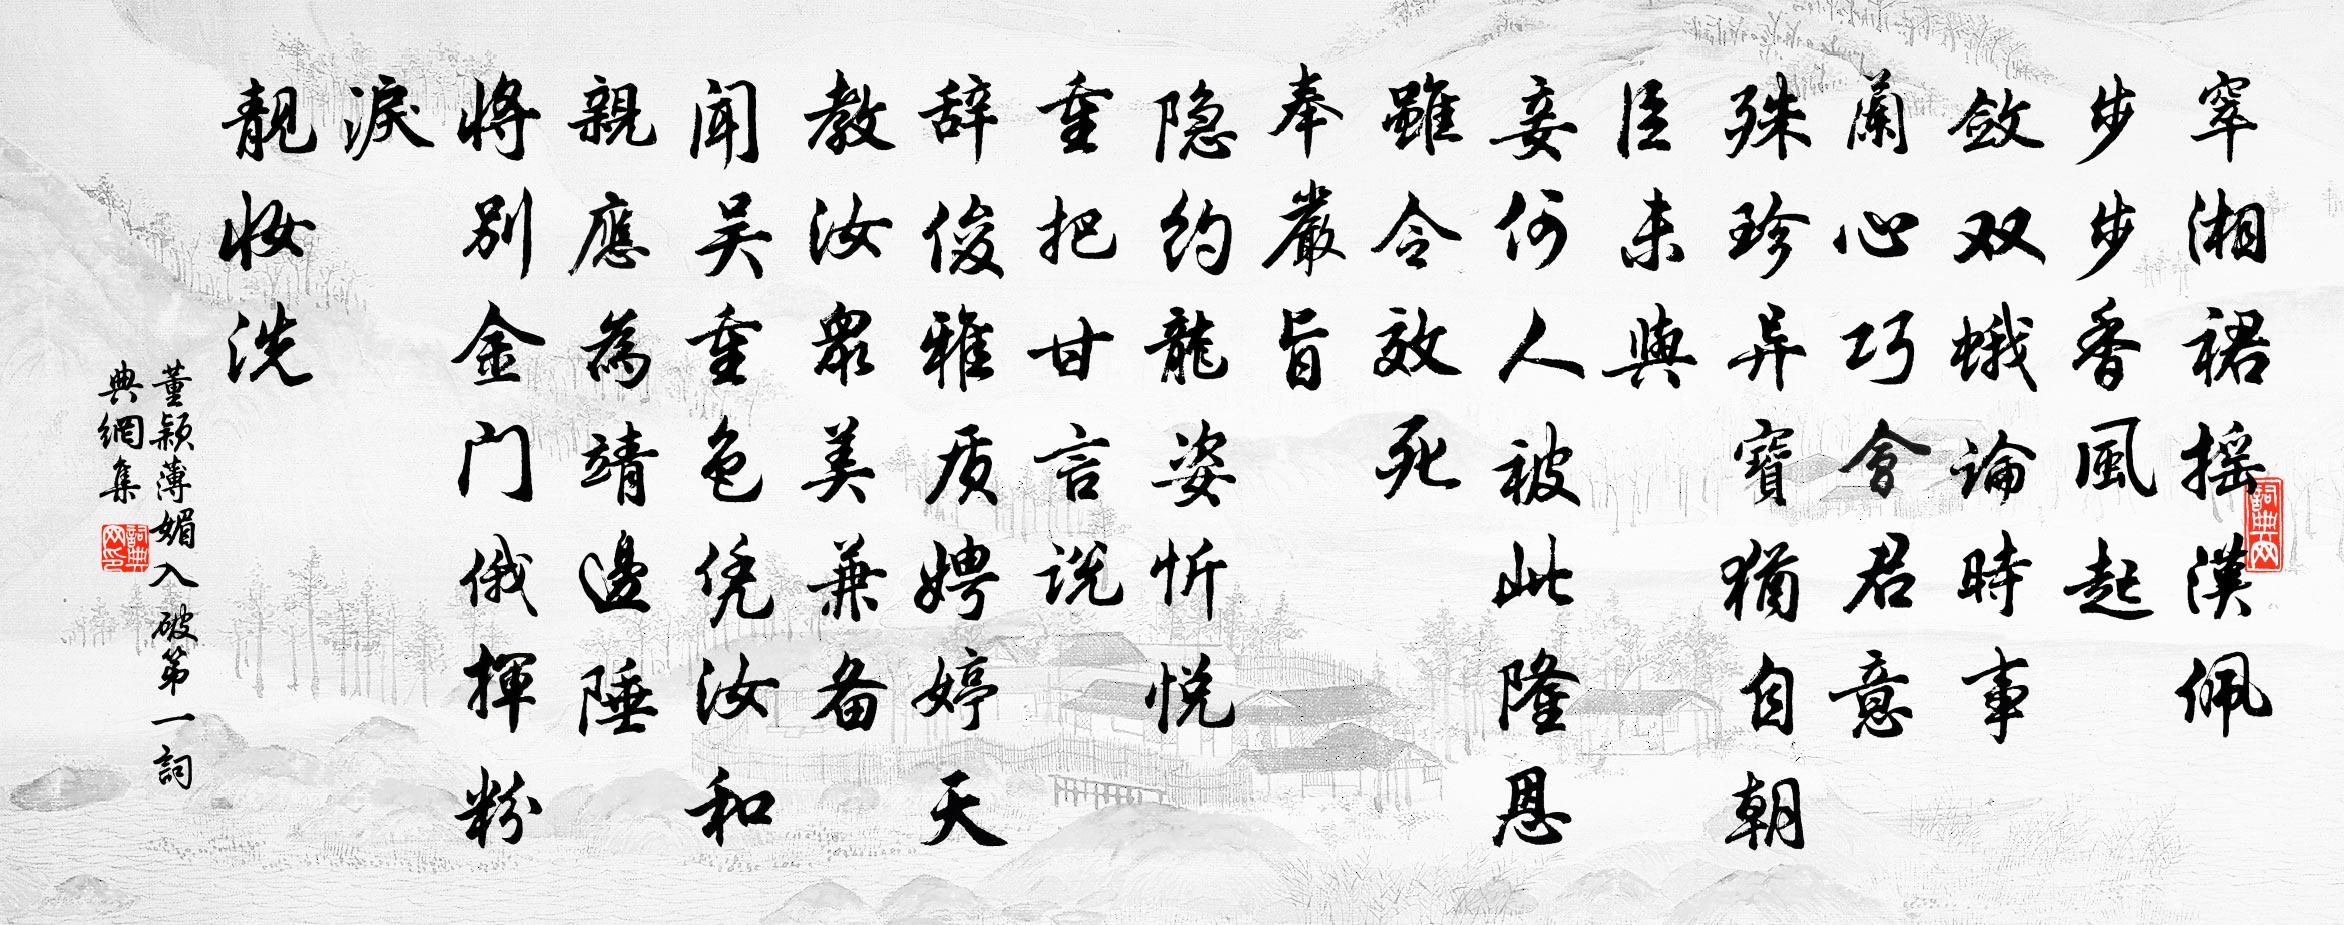 窣湘裙摇漢佩
步步香風起
斂双蛾論時事
蘭心巧會君意
殊珍异寶猶自朝
臣未與
妾何人被此隆恩
雖令效死
奉嚴旨
隐約龍姿忻悦
重把甘言说
辞俊雅质娉婷天
教汝眾美兼备
闻吴重色凭汝和
親應為靖邊陲
將别金门俄揮粉
淚
靚妝洗
董颖薄媚入破第一詞
典網集
詞典网
詞典网印